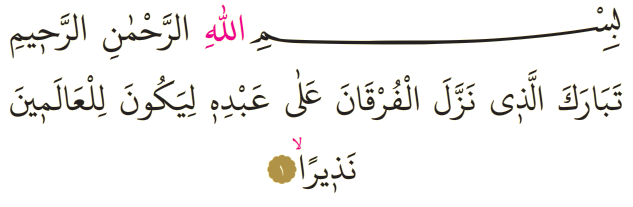 بِسْمِ اللّٰهِ الرَّحْمٰنِ الرَّح۪يمِ
تَبَارَكَ الَّذ۪ى نَزَّلَ الْفُرْقَانَ عَلٰى عَبْدِه۪ لِيَكُونَ لِلْعَالَم۪ينَ
نَذ۪يرًاۙ ﴿١﴾